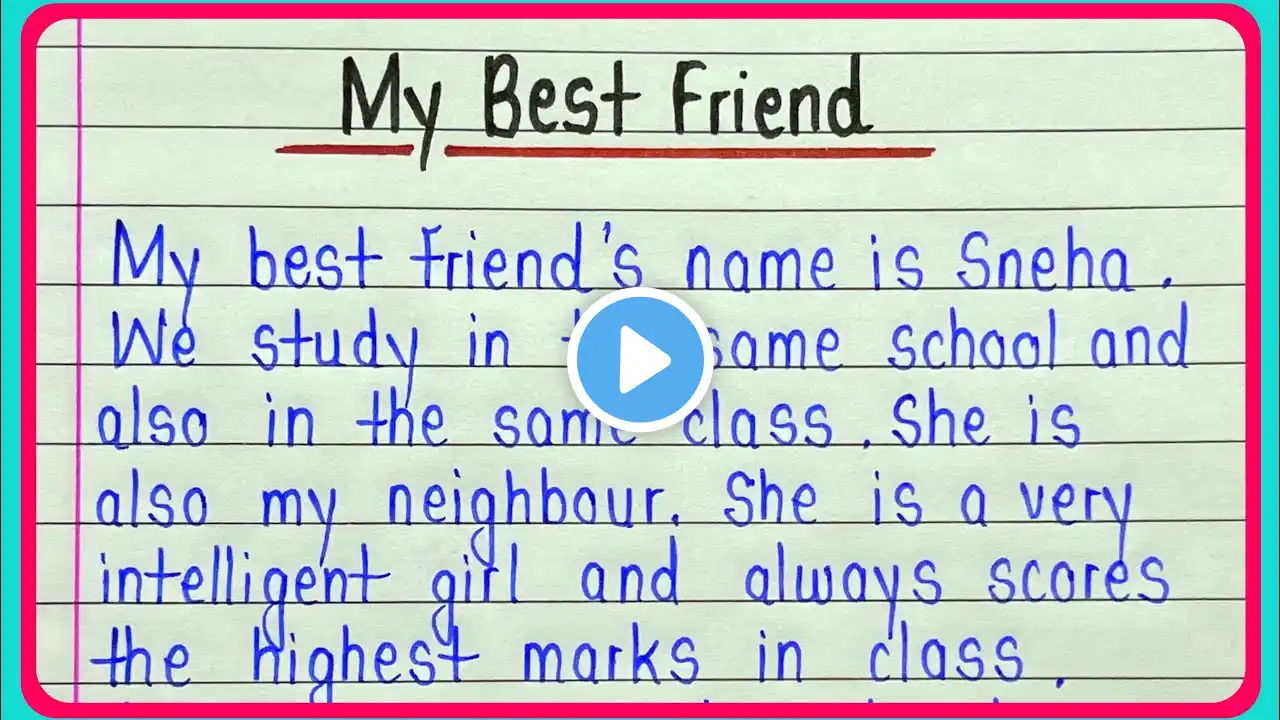 My Best Friend
My best friend's name is Sneha.
We study in same school and
also in the same class. She is
also my neighbour. She is a very
intelligent girl and always scores
the highest marks in class.